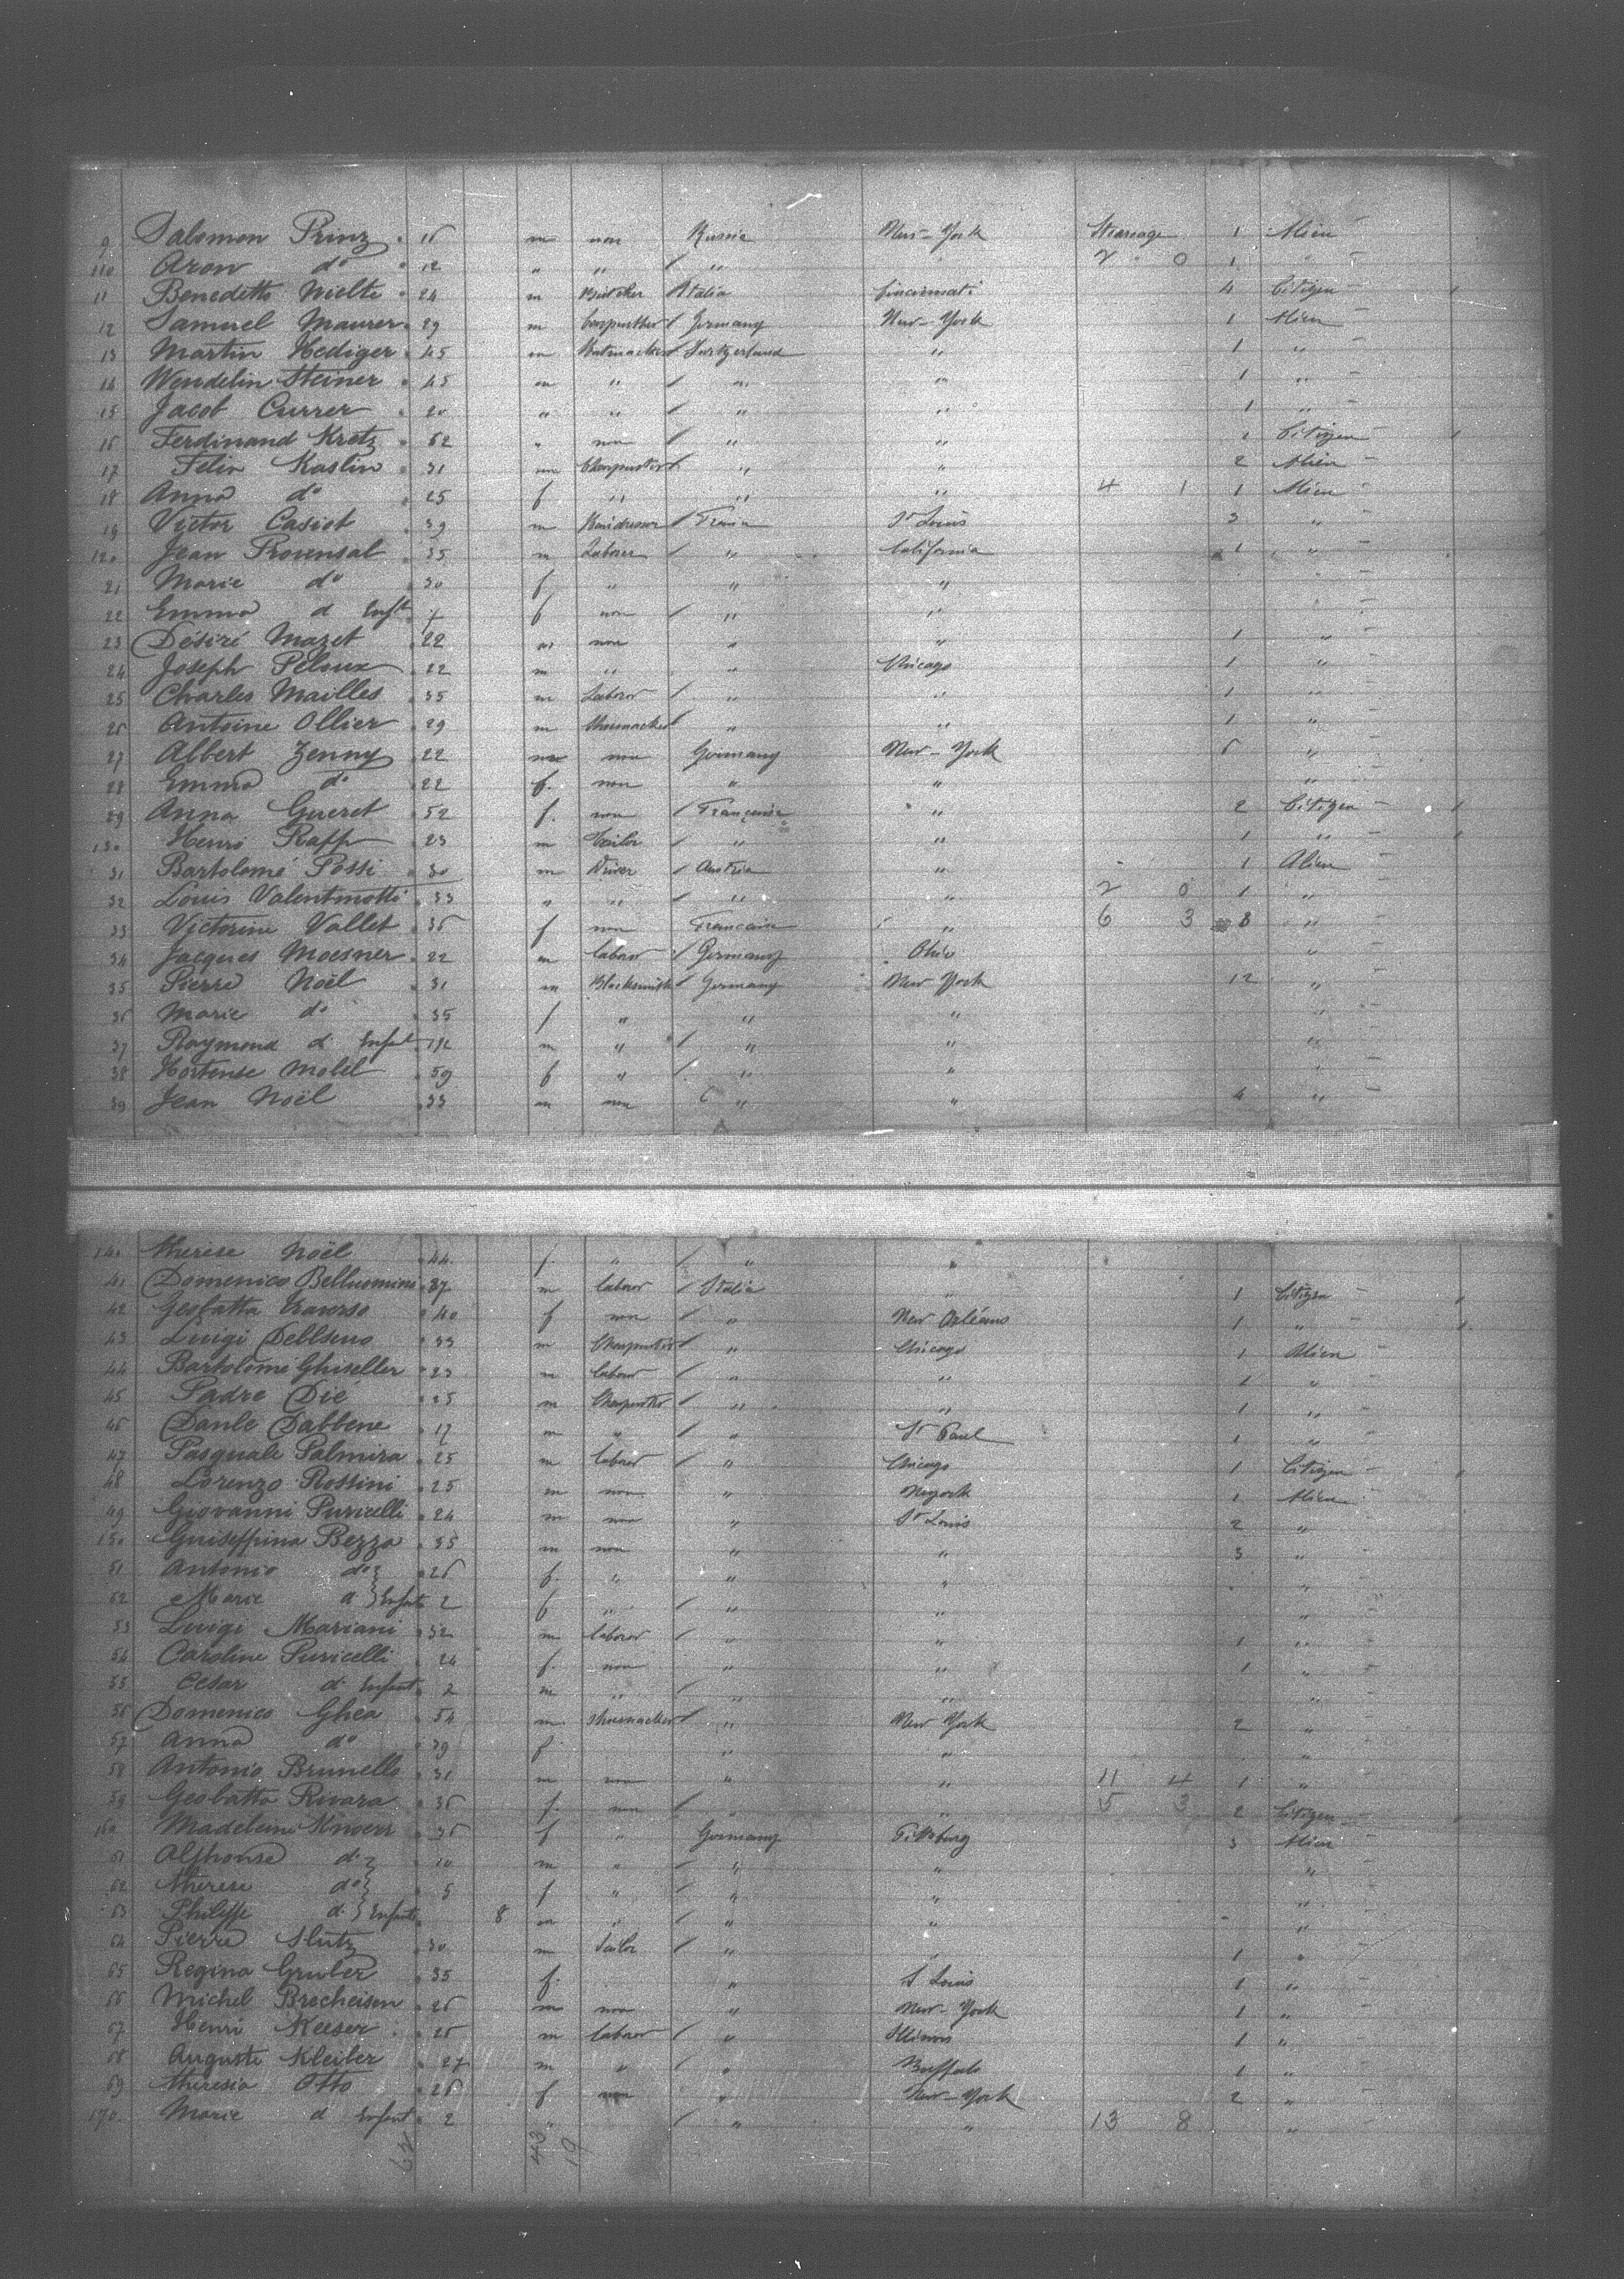 9 Salomon Prinz 16 m non Russia New-York Steerage 1 Alien
110 Aron do 12 " " " 2 0 1 "
11 Benedetto Nielte 24 m Butcher Italia Cincinnati 4 Citizen
12 Samuel Maurer 29 m Carpenther Germany New-York 1 Alien
13 Martin Hediger 45 m Switzerland " 1 "
14 Wendelin Steiner 45 m " " " 1 "
15 Jacob Currer 20 " " " " 1 "
16 Ferdinand Kretz 52 " non " " 1 Citizen
17 Felix Kaslin 31 m Charpentier " " 2 Alien
18 Anna do 25 f " " " 4 1 1 Alien
19 Victor Casiot 39 m France St Louis 3 "
120 Jean Provensal 35 m Laborer " California 1 "
21 Marie do 30 f " " "
22 Emma d Enft f non " "
23 Désiré Mazet 22 m non " " 1 "
24 Joseph Peloux 22 m " " Chicago 1 "
25 Charles Mailles 35 m Labour " " 1 "
26 Antoine Ollier 29 m Shoemacker " " 1 "
27 Albert Zenny 22 m non Germany New-York 5 "
28 Emma do 22 f. non " " "
29 Anna Gueret 52 f. non Française " 2 Citizen
130 Henri Rapp 23 m Tailor " " 1 "
31 Bartolomé Possi 30 m Austria " 1 Alien
32 Louis Valentinotti 33 " " " " 2 0 1 "
33 Victorine Vallet 36 f non Francaise " 6 3 3 "
34 Jacques Moesner 22 m labour Germany Ohio "
35 Pierre Noël 31 m Blacksmith Germany New York 12 "
36 Marie do 35 f " " " "
37 Raymond d Enfant m " " " "
38 Hortense Mobel 59 f " " " "
39 Jean Noël 33 m non " " 4 "
140 Therese Noël 44 f. " " "
41 Domenico Belluomini 37 m labour Italia " 1 Citizen
42 Gesbatta Traverso 40 f non " New Orléans 1 "
43 Luigi 33 m Charpentier " Chicago 1 Alien
44 Bartolomé Ghiseller 23 m labour " " 1 "
45 Padre Dié 25 m Charpentier " " 1 "
46 Dante Dabbene 17 m " " St Paul 1 "
47 Pasquale Palmira 25 m labour " Chicago 1 Citizen
48 Lorenzo Rossini 25 m non " Neyork 1 Alien
49 Giovanni Puricelli 24 m non " St Louis 2 "
150 Guiseppina Bezza 35 m non " " 3 "
51 Antonio do 26 f. " " " "
52 Marie d Enfants 2 f " " " "
53 Luigi Mariani 32 m laborer " " 1 "
54 Caroline Puricelli 24 f. non " " 1 "
55 Cesar d Enfant 2 m " " " "
56 Domenico Ghea 54 m shoemacker " New York 2 "
57 Anna do 39 f " " "
58 Antonio Brunello 31 m non " " 11 4 1 "
59 Gesbatta Rivara 36 f. non " " 5 3 2 Citizen
160 Madeleine Knoerr 36 f " Germany Pittsburg 3 Alien
61 Alphonse d 10 m " " " "
62 Therese do 5 f " " " "
63 Philippe d Enfants 8 m " " " "
64 Pierre Slutz 30 m Tailor " " 1 "
65 Regina Gruber 35 f. " S Louis 1 "
66 Michel Brecheisen 26 m non " New-York 1 "
67 Henri Keeser 26 m labour " Illinois 1 "
68 Auguste Kleiber 27 m " " Buffalo 1 "
69 Theresia Otto 26 f non " New-York 2 "
170 Marie d Enfant 2 " " " 13 8 "
62 43 19